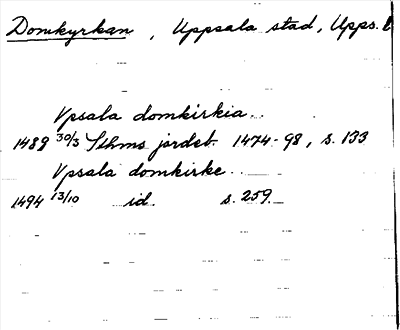 Domkyrkan, Uppsala stad, Upps. l
Vpsala domkirkia..
1489 30/3 Sthms jordeb. 1474-98, s. 133
Vpsala domkirke..
1494 13/10 id. s. 259.